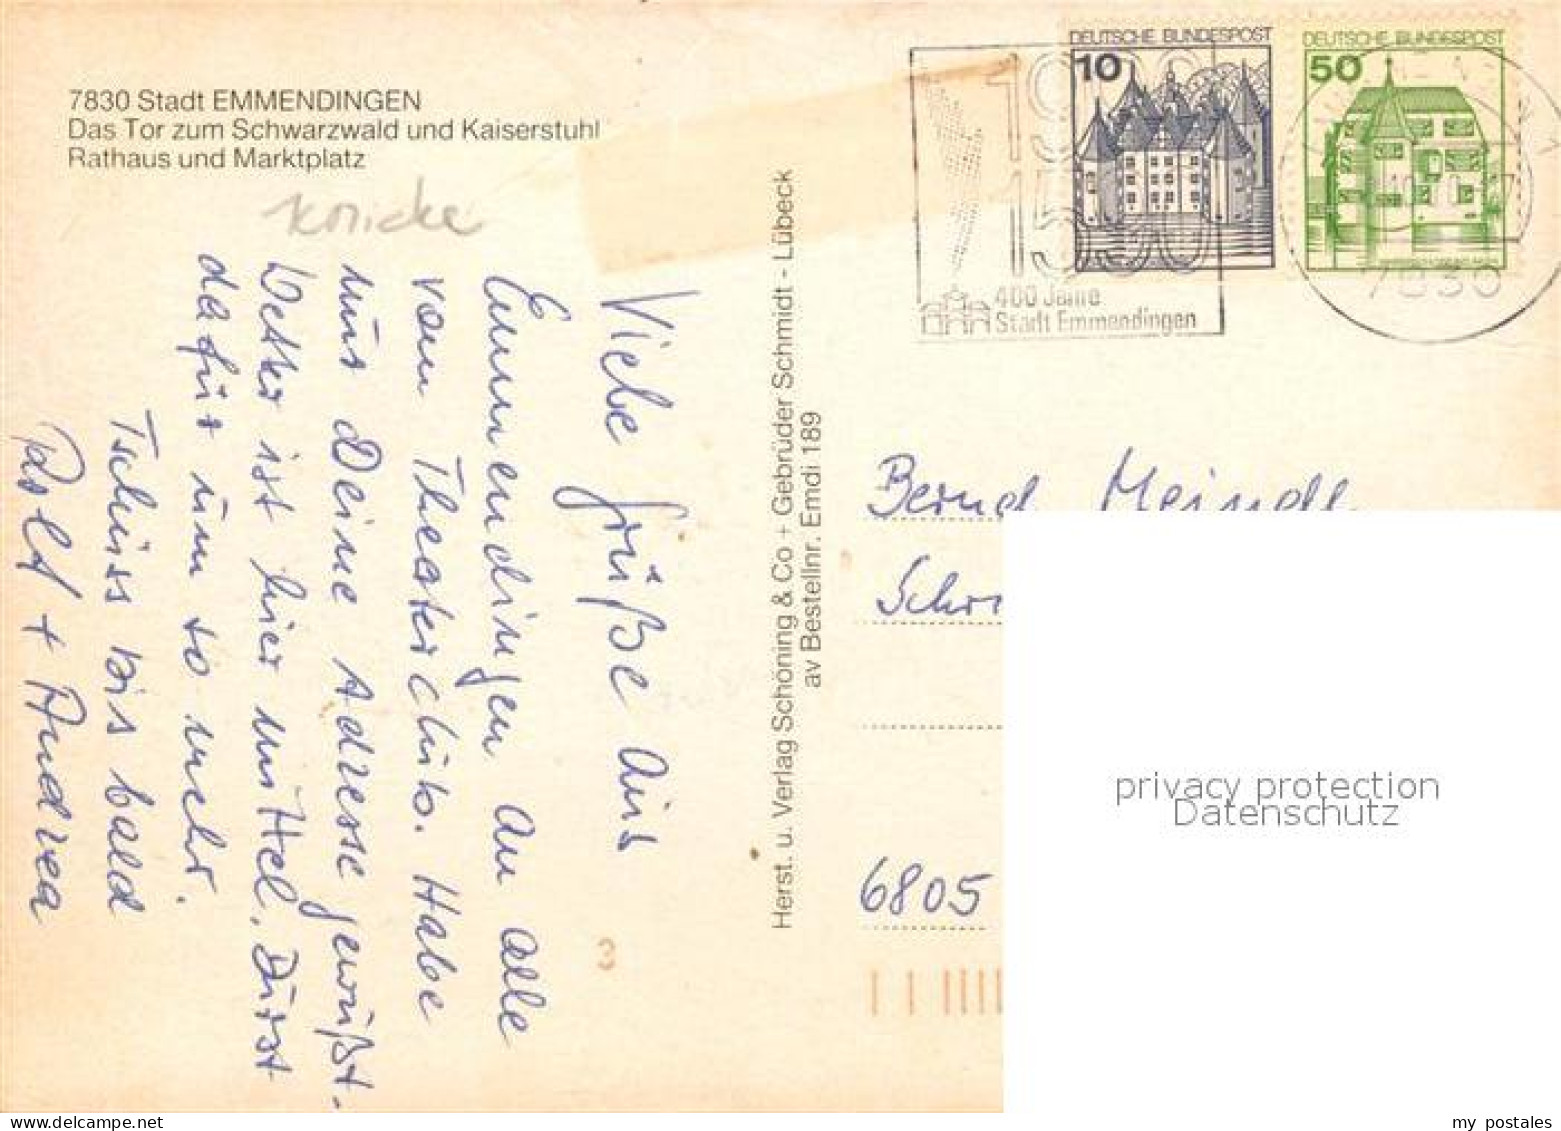 7830 Stadt EMMENDINGEN
Das Tor zum Schwarzwald und Kaiserstuhl
Rathaus und Marktplatz
Viele Grüße aus
Emmendingen an alle
vom Theaterclub. Habe
nur Deine Adresse gewußt.
Wetter ist hier mittel. Durst
dafür um so mehr.
Tschüss bis bald
Rolf + Andrea
Herst. u. Verlag Schöning & Co + Gebrüder Schmidt - Lübeck
av Bestellnr. Emdi 189
DEUTSCHE BUNDESPOST
10
DEUTSCHE BUNDESPOST
50
1590
400 Jahre
Stadt Emmendingen
7830
Bernd Meindl
6805
3
privacy protection
Datenschutz
my postales